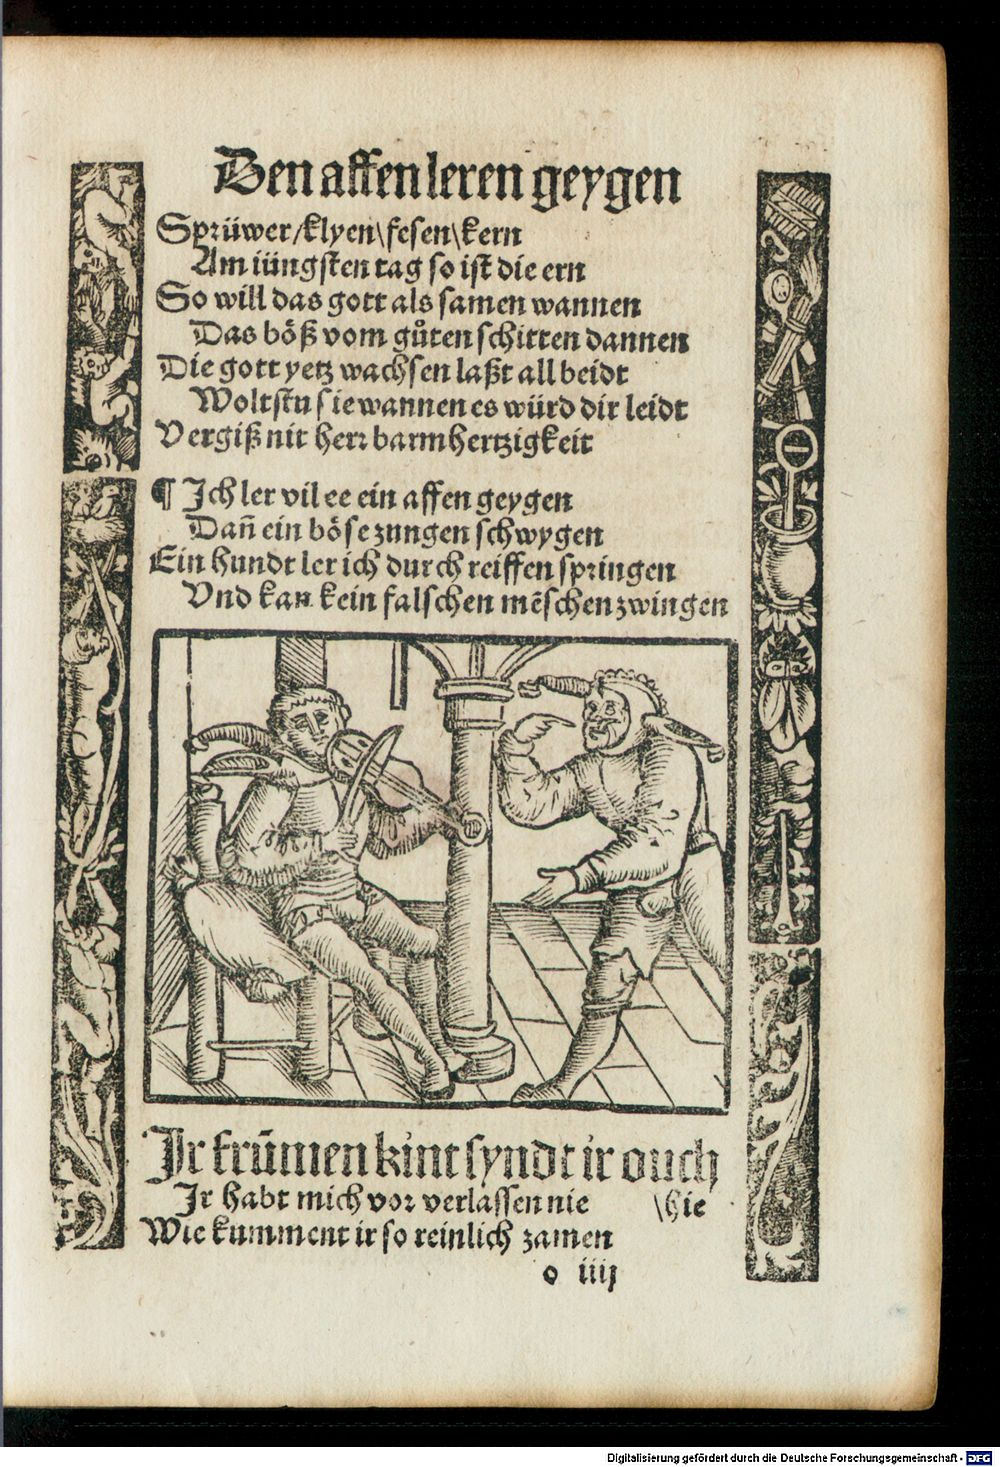 Den affen leren geygen
Sprüwer/klyen\fesen\kern
Am iüngsten tag so ist die ern
So will das gott als samen wannen
Das böß vom gůten schitten dannen
Die gott yetz wachsen laßt all beidt
Woltstu sie wannen es würd dir leidt
Vergiß nit herr barmhertzigkeit
¶ Ich ler vil ee ein affen geygen
Dañ ein böse zungen schwygen
Ein hundt ler ich durch reiffen springen
Vnd kan kein falschen mēschen zwingen
Ir frūmen kint syndt ir ouch
Ir habt mich vor verlassen nie \hie
Wie kumment ir so reinlich zamen
o iiij
Digitalisierung gefördert durch die Deutsche Forschungsgemeinschaft - DFG